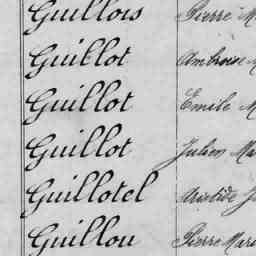 Guillois Pierre M
Guillot Ambroise M
Guillot Emile M
Guillot Julien Ma
Guillotel Aristide J
Guillou Pierre Mari